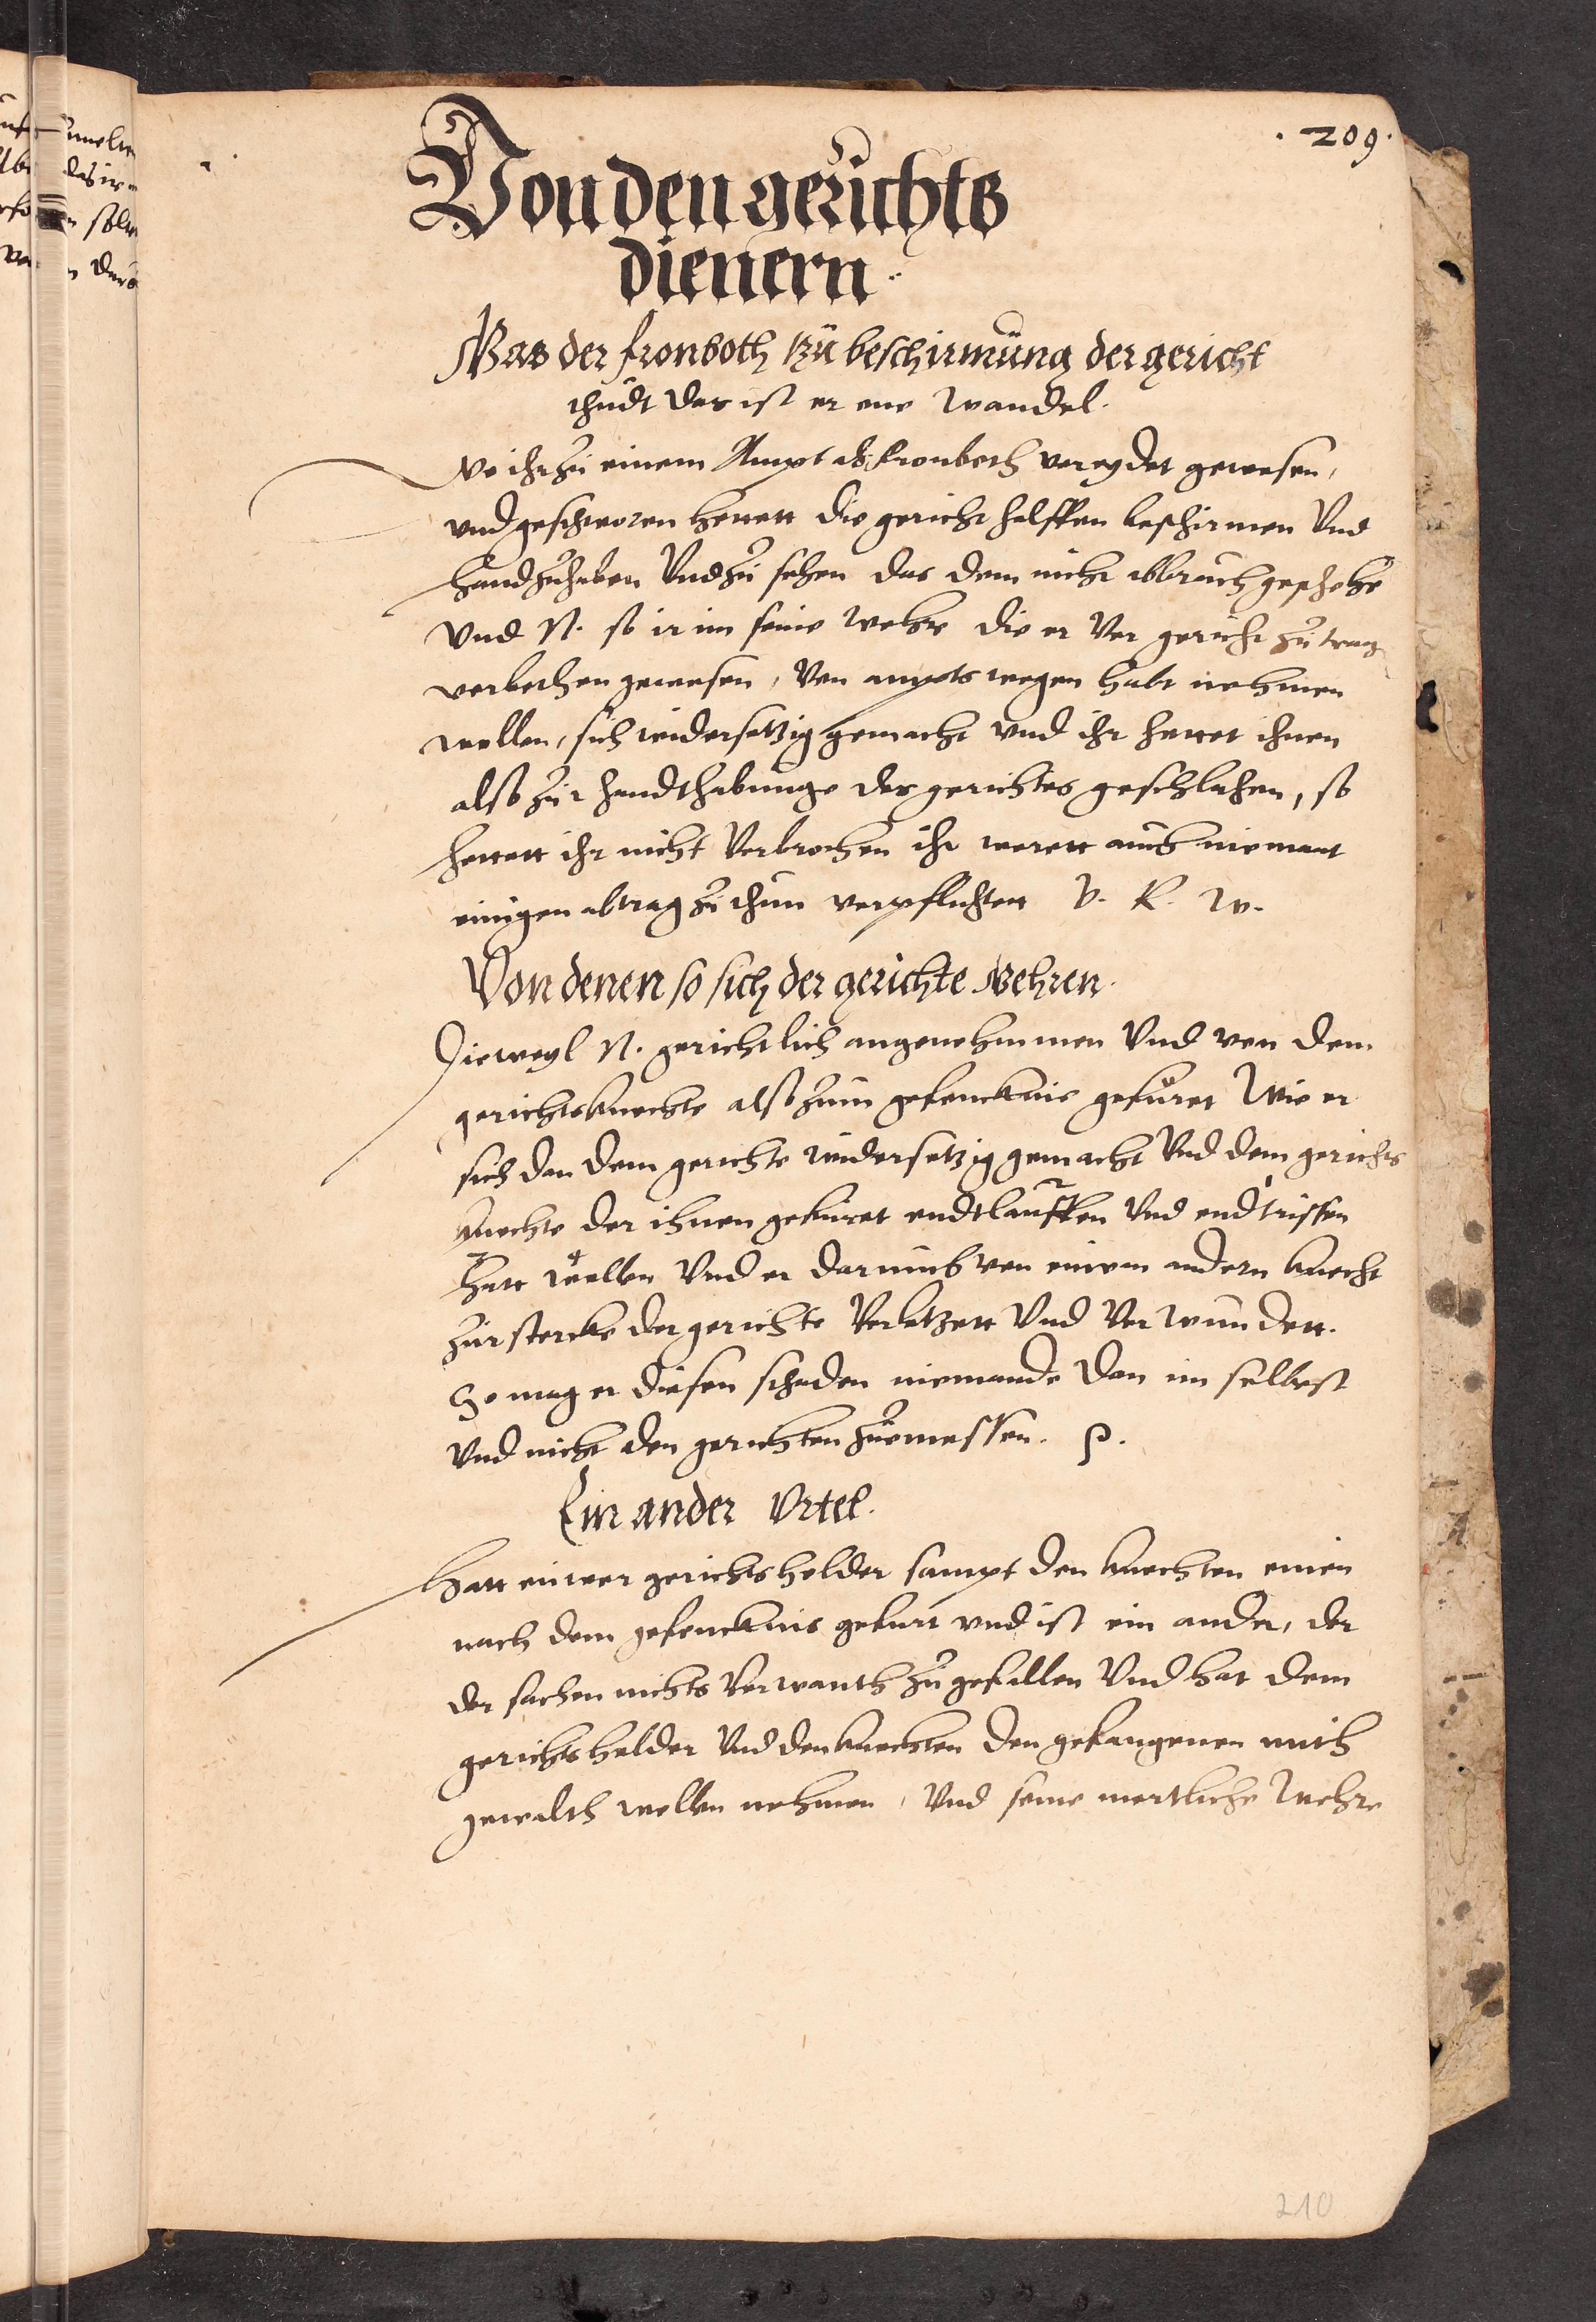 . 209.
Von den gerichts
dienern.
Was der fronboth tzu beschirmung der gericht
thudt das ist er one wandel.
Wo ihr zu einem Ampt als fronboth voreydet gewesen,
vnd geschworen hettett die gericht helffen beschirmen Vnd
handzuhaben Vnd zu sehen das dem nicht abbruch geschehe
Vnd N. so ir im seine wehre die er Vor gericht zu trag
verbothen gewesen, Von ampts wegen habt nehmen
wollen, sich widersetzig gemacht vnd ihr hettet ihnen
also zur handthabunge des gerichtes geschlahen, so
hettett ihr nicht Verbrochen ihr werett auch niemant
einigen abtrag zu thun verpflichtett V. R. W.
Von denen so sich der gerichte Wehren.
Dieweyl N. gerichtlich angenohmmen Vnd von dem
gerichtsknechte also zum gefencknis gefuret Wie er
sich dan dem gerichte widersetzig gemacht Vnd dem gerichts
knechte der ihnen gefuret endtlauffen Vnd endtrissen
hatt wollen Vnd er darumb von einem andern knecht
zur stercke der gerichte Verletzett Vnd Verwundett.
So mag er diesen schaden niemande dan im selbest
Vnd nicht den gerichten zuomessen. P.
Ein ander Vrtel.
Hatt einer gerichtshelder sampt den knechten einen
nach dem gefencknis gefurt vnd ist ein ander, der
der sachen nichts Verwanth zu gefallen Vnd hat dem
gerichtshelder Vnd den knechten den gefangenen mith
gewalth wollen nehmen, Vnd seine mertliche Wehre
210